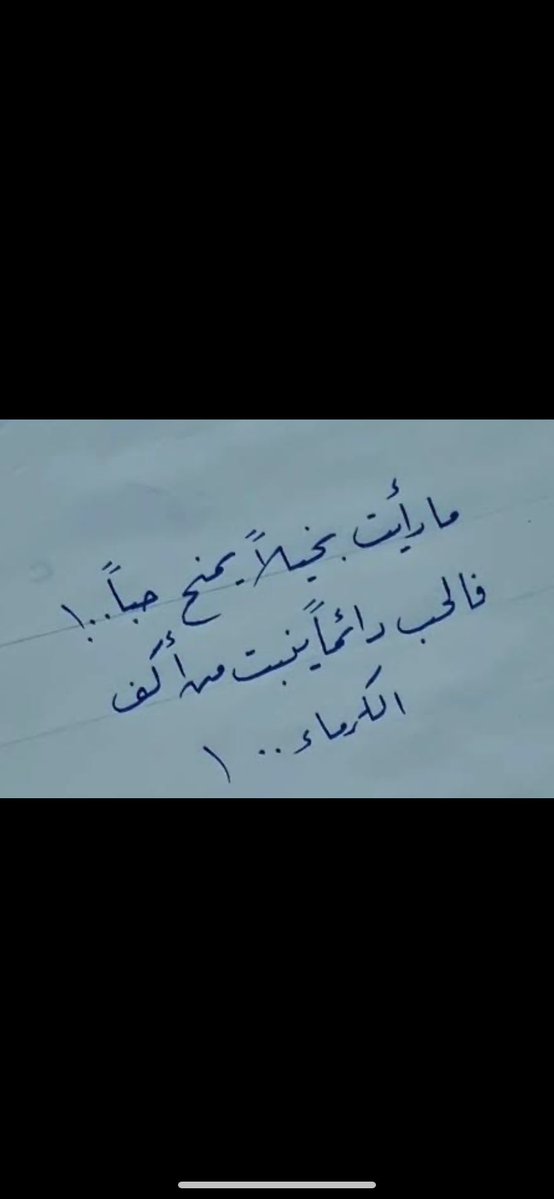 ما رأيت بخيلاً يمنح حباً..!
فالحب دائماً ينبت من أكف
الكرماء .. \